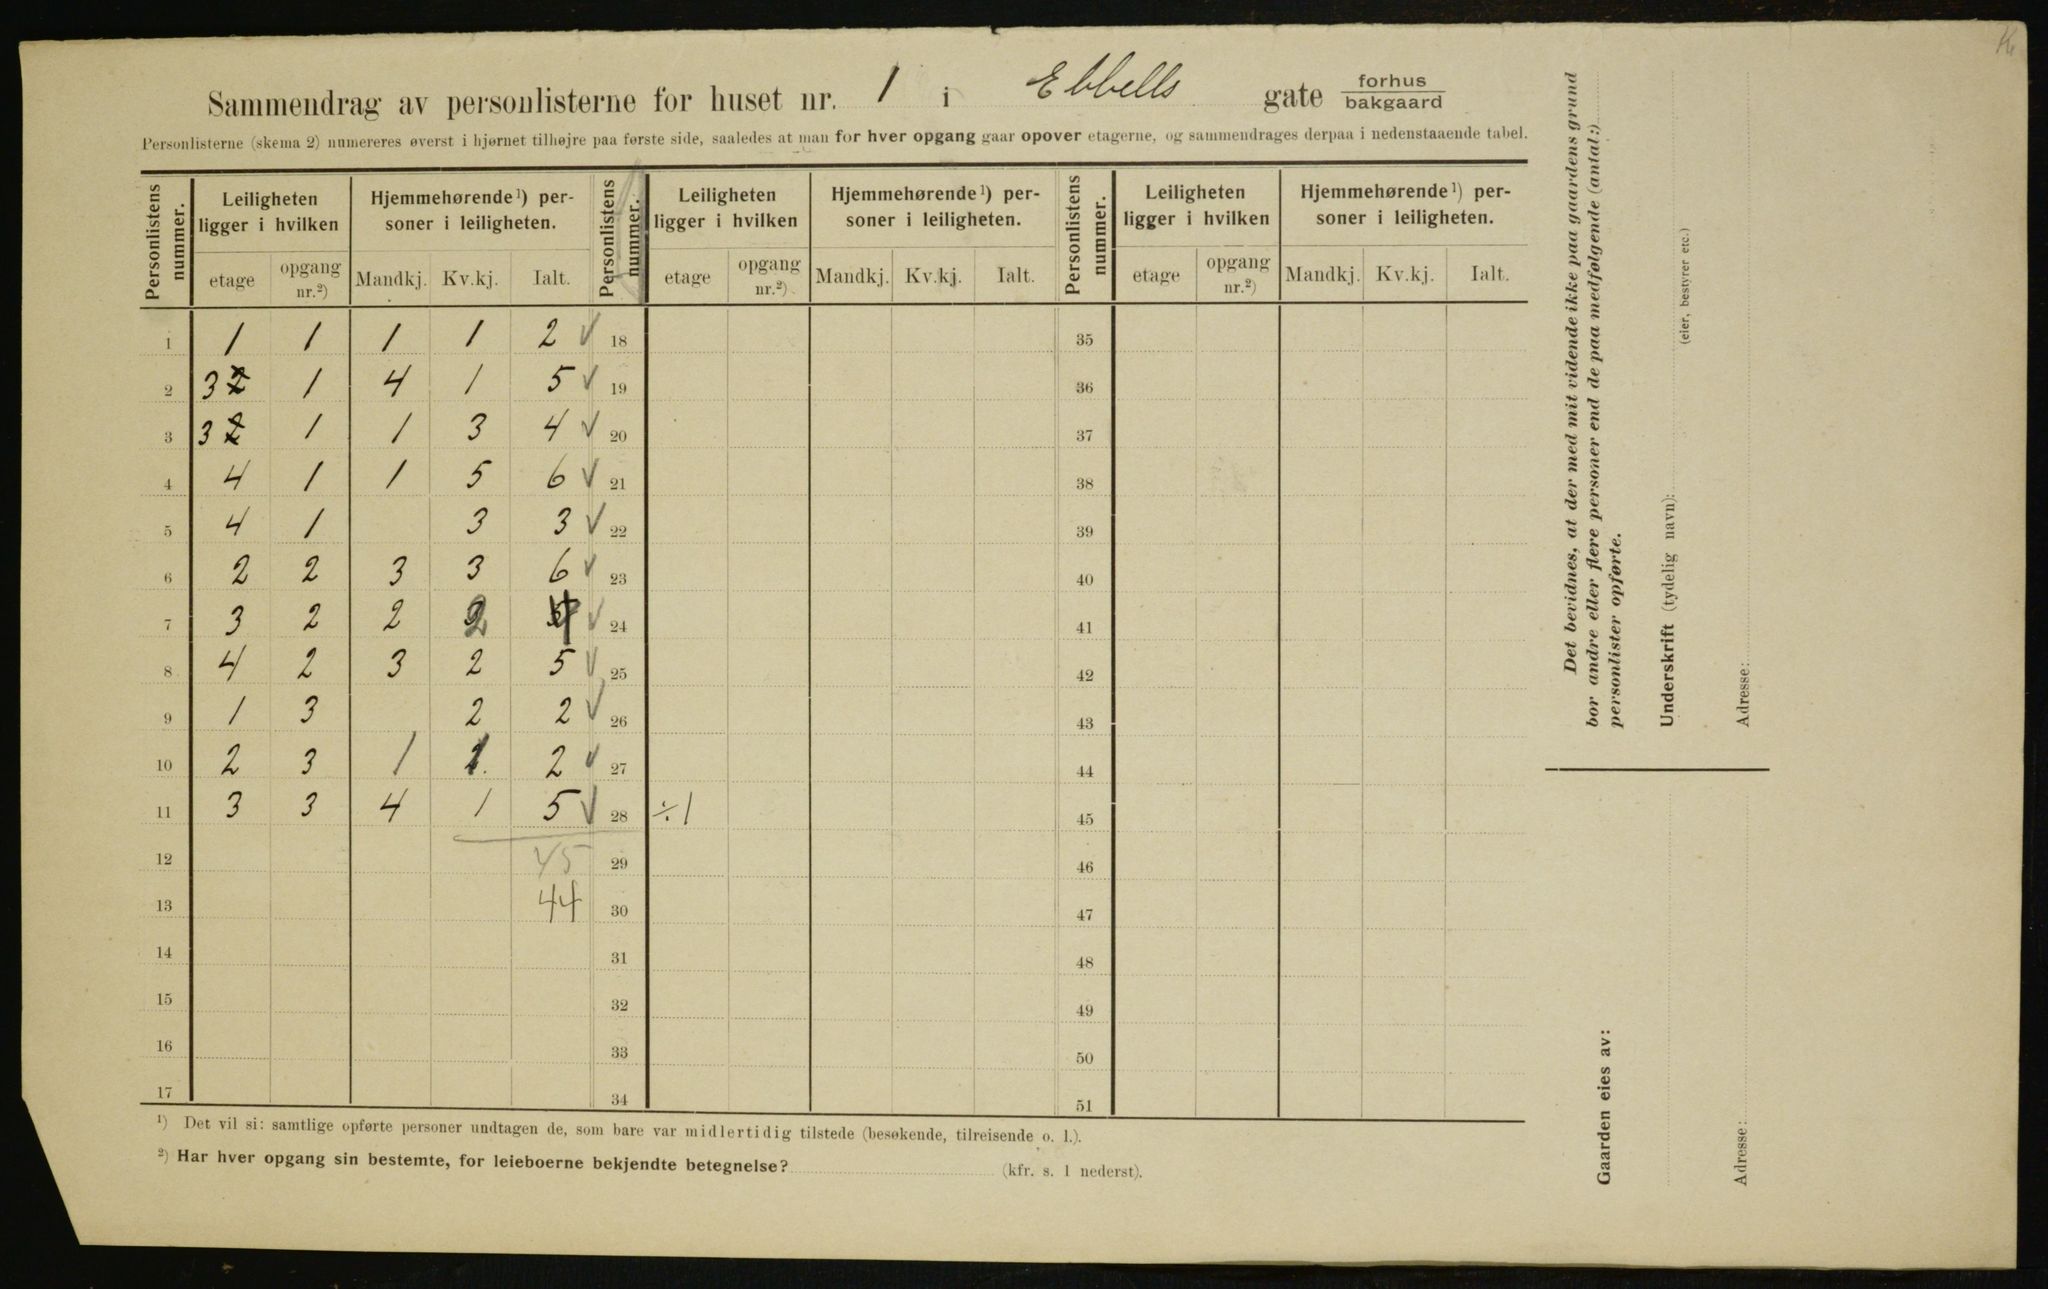 Sammendrag av personlisterne for huset nr. 1 i Ebbells gate forhus bakgaard
Personlisterne (skema 2) numereres øverst i hjørnet tilhøjre paa første side, saaledes at man for hver opgang gaar opover etagerne, og sammendrages derpaa i nedenstaaende tabel.
Personlistens nummer. Leiligheten ligger i hvilken Hjemmehørende¹) personer i leiligheten. Personlistens nummer. Leiligheten ligger i hvilken Hjemmehørende¹) personer i leiligheten. Personlistens nummer. Leiligheten ligger i hvilken Hjemmehørende¹) personer i leiligheten.
etage opgang nr.²) Mandkj. Kv.kj. Ialt. etage opgang nr.²) Mandkj. Kv.kj. Ialt. etage opgang nr.²) Mandkj. Kv.kj. Ialt.
1 1 1 1 1 2 ✓ 18 35
2 3 2 1 4 1 5 ✓ 19 36
3 3 2 1 1 3 4 ✓ 20 37
4 4 1 1 5 6 ✓ 21 38
5 4 1 3 3 ✓ 22 39
6 2 2 3 3 6 ✓ 23 40
7 3 2 2 2 4 ✓ 24 41
8 4 2 3 2 5 ✓ 25 42
9 1 3 2 2 ✓ 26 43
10 2 3 1 1 2 ✓ 27 44
11 3 3 4 1 5 ✓ 28 ÷1 45
12 45 29 46
13 44 30 47
14 31 48
15 32 49
16 33 50
17 34 51
¹) Det vil si: samtlige opførte personer undtagen de, som bare var midlertidig tilstede (besøkende, tilreisende o. l.).
²) Har hver opgang sin bestemte, for leieboerne bekjendte betegnelse? (kfr. s. 1 nederst).
Det bevidnes, at der med mit vidende ikke paa gaardens grund
bor andre eller flere personer end de paa medfølgende (antal:)
personlister opførte.
Underskrift (tydelig navn):
(eier, bestyrer etc.)
Adresse:
Gaarden eies av:
Adresse: